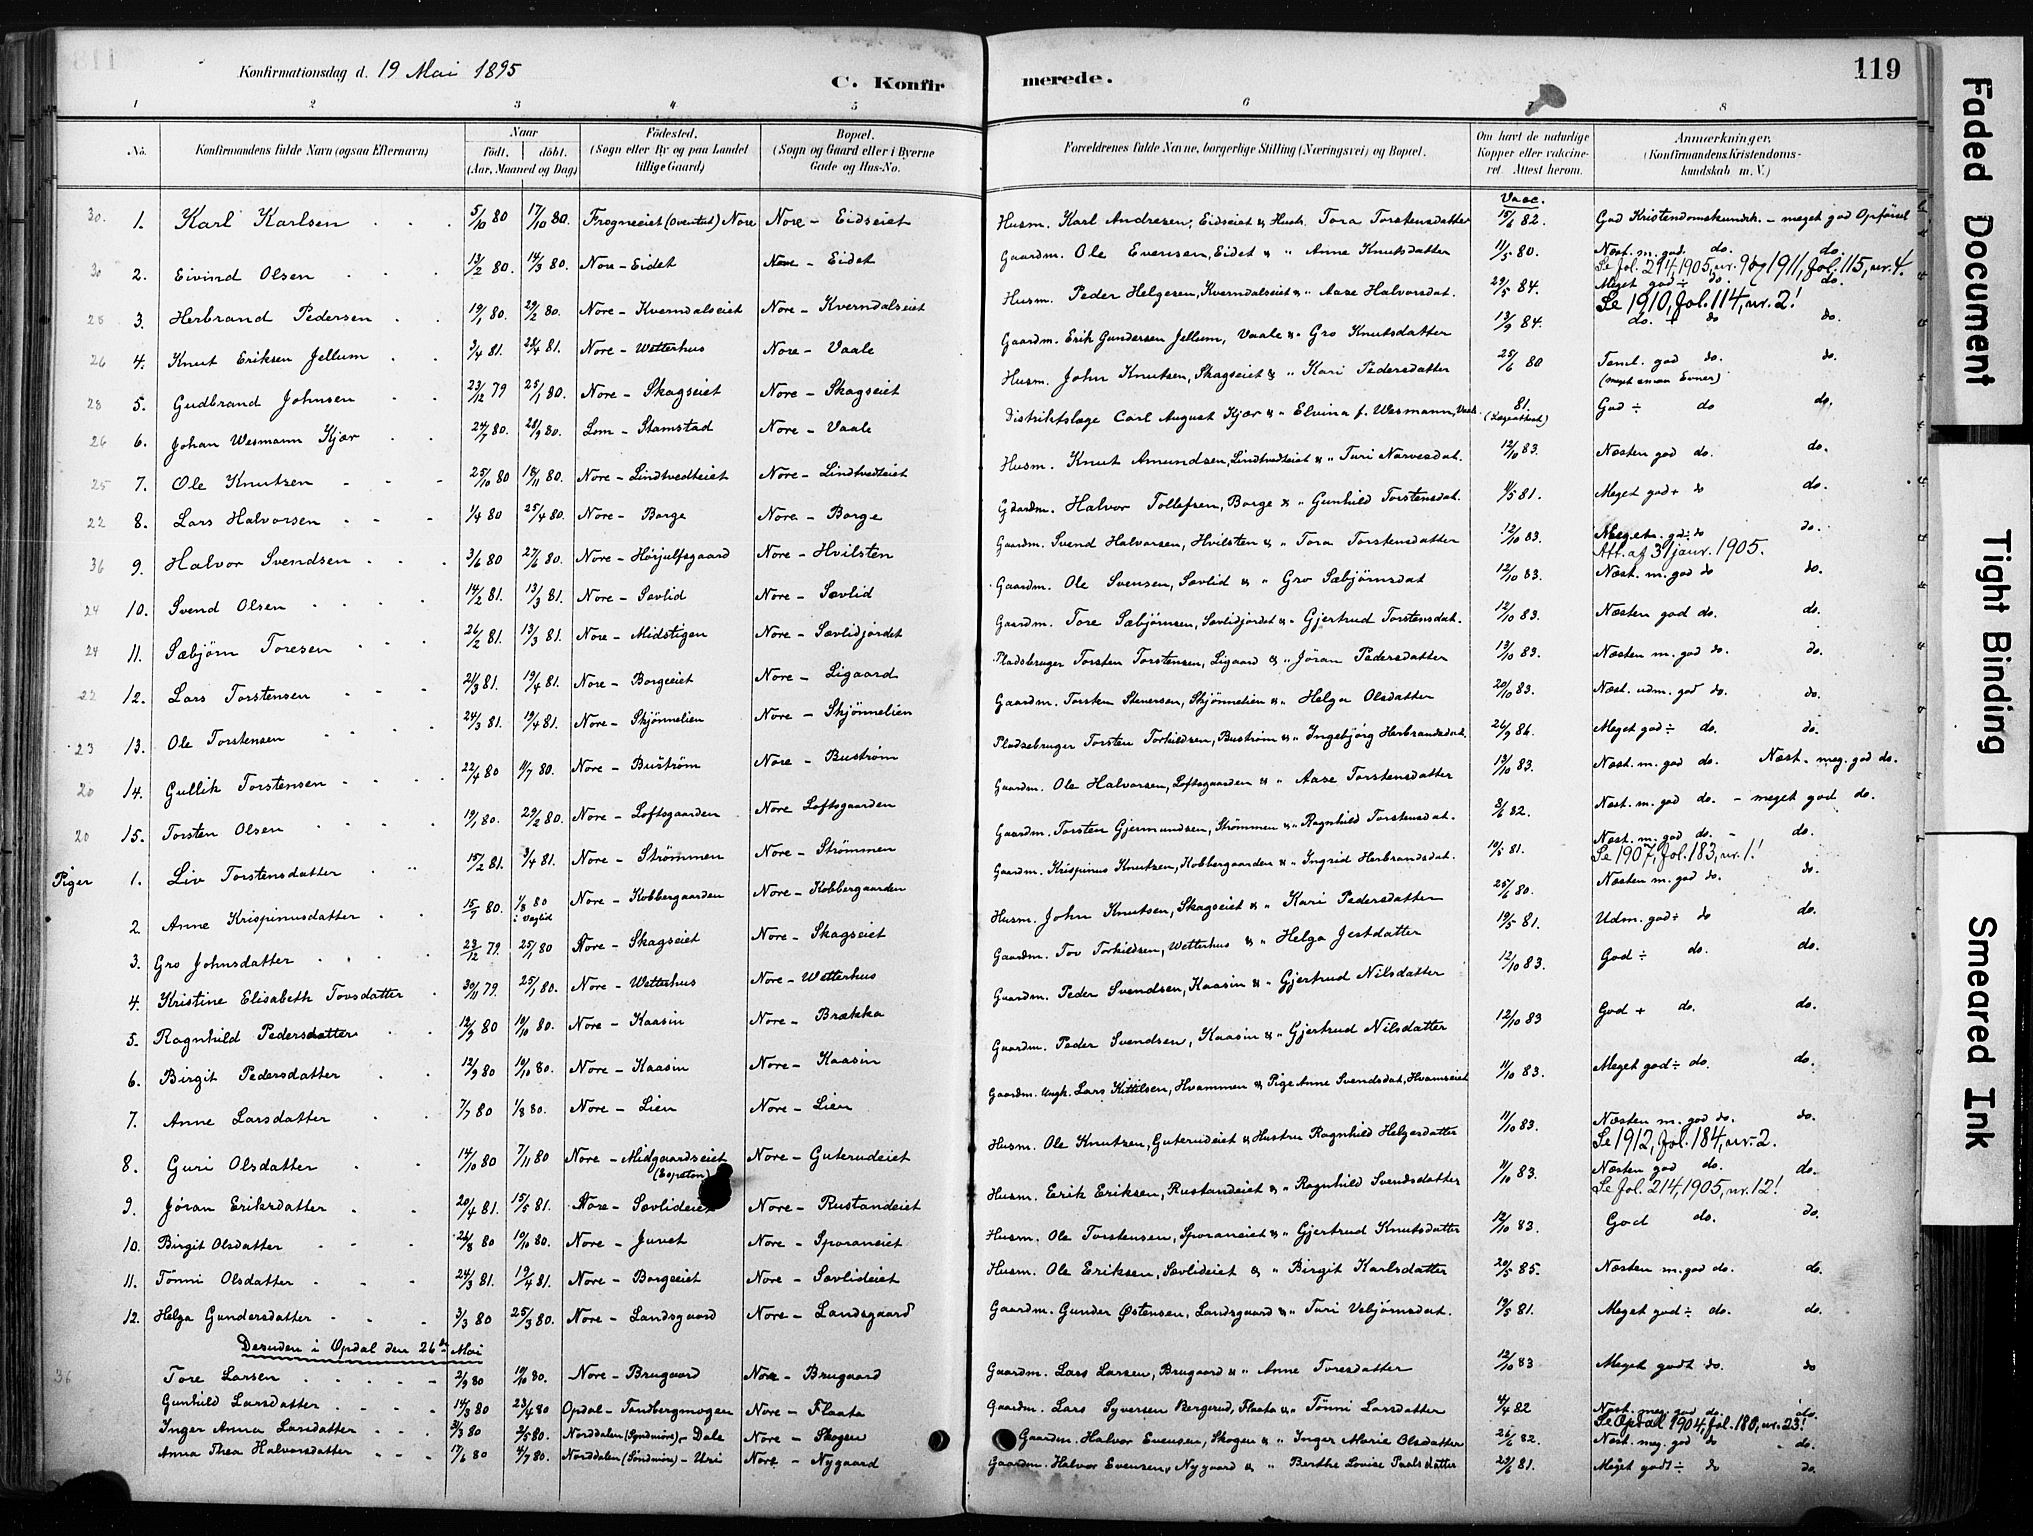 Konfirmationsdag d. 19 Mai 1895
C. Konfirmerede.
119
1 2 3 4 5 6 7 8
No. Konfirmandens fulde Navn (ogsaa Efternavn) Naar født. døbt. (Aar, Maaned og Dag) Fødested. (Sogn eller By og paa Landet tillige Gaard) Bopæl. (Sogn og Gaard eller i Byerne Gade og Hus-No. Forældrenes fulde Navne, borgerlige Stilling (Næringsvei) og Bopæl. Om havt de naturlige Kopper eller vakcineret. Attest herom. Anmærkninger. (Konfirmandens Kristendomskundskab m. V.)
Vacc.
30. 1. Karl Karlsen 5/10 80 17/10 80. Frogneeiet (Overtut) Nore Nore – Eidseiet Husm. Karl Andresen, Eidseiet & Hust. Tora Torstensdatter 15/6 82. God Kristendomskundsk. – meget god Opførsel
30 2. Eivind Olsen 13/2 80. 14/3 80. Nore – Eidet Nore – Eidet Gaardm. Ole Evensen, Eidet & " Anne Knutsdatter 11/5 80. Næst. m. god do. do.
Se fol. 214, 1905, nr. 9 og 1911, fol. 115, nr. 4.
28 3. Herbrand Pedersen 19/1 80. 29/2 80. Nore – Kverndalseiet Nore – Kverndalseiet Husm. Peder Helgesen, Kverndalseiet & " Aase Halvorsdat. 29/5 84. Meget god ÷ do. do.
Se 1910, fol. 114, nr. 2!
26 4. Knut Eriksen Jellum 3/4 81. 28/4 81. Nore – Wetterhus Nore – Vaale Gaardm. Erik Gundersen Jellum, Vaale & " Gro Knutsdatter 13/9 84. do. + do do.
28 5. Gudbrand Johnsen 23/12 79 25/1 80. Nore – Skagseiet Nore – Skagseiet Husm. John Knutsen, Skagseiet & " Kari Pedersdatter 25/6 80 Teml. god do. do.
(meget smaa Evner)
26 6. Johan Wesmann Kjær 24/7 80. 28/9 80. Lom – Stamstad Nore – Vaale Distriktslæge Carl August Kjær & " Elvina f. Wesmann, Vaale. 81. (Lægeattest) God ÷ do do.
25 7. Ole Knutsen 25/10 80 18/11 80. Nore – Lindtvedteiet Nore – Lindtvedteiet Husm. Knut Amundsen, Lindtvedteiet & " Turi Narvesdat. 12/10 83. Næsten god do. do.
22 8. Lars Halvorsen 1/4 80 25/4 80. Nore – Borge Nore – Borge Gdardm. Halvor Tollefsen, Borge & " Gunhild Torstensdat. 11/5 81. Meget god + do do.
36 9. Halvor Svendsen 3/6 80 27/6 80. Nore – Hørjulfsgaard Nore – Hvilsten Gaardm. Svend Halvorsen, Hvilsten & " Tora Torstensdatter 12/10 83. do.
Att. af 31 janr. 1905.
24 10. Svend Olsen 14/2 81. 13/3 81. Nore – Sevlid Nore – Sevlid Gaardm. Ole Svensen, Sevlid & " Gro Sæbjørnsdat 12/10 83. Næst. m. god do do.
24 11. Sæbjørn Toresen 26/2 81. 13/3 81. Nore – Midstigen Nore – Sevlidjordet Gaardm. Tore Sæbjørnsen, Sevlidjordet & " Gjertrud Torstensdat. 12/10 83. Næsten god do. do.
22 12. Lars Torstensen 21/3 81. 19/4 81. Nore – Borgeeiet Nore – Ligaard Pladsbruger Torsten Torstensen, Ligaard & " Jøran Pedersdatter 13/10 83. Næsten m. god do. do.
23 13. Ole Torstensen 24/3 81. 19/4 81. Nore – Skjønnelien Nore – Skjønnelien Gaardm. Torsten Stenersen, Skjønnelien & " Helga Olsdatter 20/10 83. Næst. udm. god do. do.
20 14. Gullik Torstensen 22/4 80 11/7 80. Nore – Buström Nore – Buström Pladsebruger Torsten Torkildsen, Buström & " Ingebjørg Herbrandsdat. 26/9 86. Meget god ÷ do. do.
20 15. Torsten Olsen 19/1 80. 29/2 80. Nore – Loftsgaarden Nore Loftsgaarden Gaardm. Ole Halvorsen, Loftsgaarden & " Aase Torstensdatter 13/10 83. Næst. m. god do. Næst. meg. god do.
Piger 1. Liv Torstensdatter 15/2 81. 3/4 81. Nore – Strømmen Nore – Strømmen Gaardm. Torsten Gjermundsen, Strømmen & " Ragnhild Torstensdat. 3/6 82. Næst. m. god do. – meget god do.
2. Anne Krispinusdatter 15/7 80. 1/8 80 i Veglid Nore – Kobbergaarden Nore – Kobbergaarden Gaardm. Krispinus Knutsen, Kobbergaarden & " Ingrid Herbrandsdat. 10/5 81. Næst. m. god do. – do.
Se 1907, fol. 183, nr. 1!
3. Gro Johnsdatter 23/12 79. 25/1 80 Nore – Skagseiet Nore – Skagseiet Husm. John Knutsen, Skagseiet & " Kari Pedersdatter 25/6 80. Næsten m. god do. do.
4. Kristine Elisabeth Tovsdatter 30/11 79. 25/1 80. Nore – Wetterhus Nore – Wetterhus Gaardm. Tov Torkildsen, Wetterhus & " Helga Jestdatter 19/5 81. Udm. god ÷ do do.
5. Ragnhild Pedersdatter 12/9 80 19/10 80. Nore – Kaasin Nore – Brækka Gaardm. Peder Svendsen, Kaasin & " Gjertrud Nilsdatter 12/10 83. God ÷ do. do.
6. Birgit Pedersdatter 12/9 80 19/10 80. Nore – Kaasin Nore – Kaasin Gaardm. Peder Svendsen, Kaasin & " Gjertrud Nilsdatter 12/10 83 God + do. do.
7. Anne Larsdatter 7/7 80 1/8 80. Nore – Lien Nore – Lien Gaardm. Ungk. Lars Kittelsen, Hvammen & Pige Anne Svendsdat, Hvamseiet 11/10 83. Meget god ÷ do. do.
8. Guri Olsdatter 14/10 80 7/11 80 Nore – Midgaardseiet Nore – Guterudeiet Husm. Ole Knutsen, Guterudeiet & Hustru Ragnhild Helgesdatter 11/10 83. Næsten m. god do. do.
Se 1912, fol. 184, nr. 2.
9. Jøran Eriksdatter 20/4 81. 15/5 81. Nore – Sevlideiet Nore – Rustandeiet Husm. Erik Eriksen, Rustandeiet & " Ragnhild Svendsdatter 11/10 83. Næsten god do. do.
Se fol. 214, 1905, nr. 12!
10. Birgit Olsdatter 26/8 80 19/10 80. Nore – Juvet Nore – Sporaneiet Husm. Ole Torstensen, Sporaneiet & " Gjertrud Knutsdatter 12/10 83. God do. do.
11. Tønni Olsdatter 24/3 81. 19/4 81. Nore – Borgeeiet Nore – Sevlideiet Husm. Ole Eriksen, Sevlideiet & " Birgit Karlsdatter 20/5 85. Næsten m. god do. do.
12. Helga Gundersdatter 3/3 80 25/3 80. Nore – Landsgaard Nore – Landsgaard Gaardm. Gunder Østensen, Landsgaard & " Turi Vebjørnsdat. 19/5 81. Meget god ÷ do. do.
Desuden i Opdal den 26de Mai
36 Tore Larsen 2/9 80 19/10 80. Nore – Brugaard Nore – Brugaard Gaardm. Lars Larsen, Brugaard & " Anne Toresdatter 12/10 83 Meget godt do. do
Gunhild Larsdatter 14/3 80 23/4 80 Opdal – Tandbergmogen Nore – Flaata Gaardm. Lars Syversen Bergerud, Flaata & " Tønni Larsdatter 4/4 82 Næst. meg. god do. do.
Se Opdal 1904, fol. 180, nr. 23!
Inger Anna Larsdatter 31/3 80 2/5 80. Norddalen (Søndmøre) – Dale Nore – Skogen Gaardm. Halvor Evensen, Skogen & " Inger Marie Olsdatter 26/6 82. Næst. meg. god do – do.
Anna Thea Halvorsdatter 17/6 80 4/7 80. Norddalen (Søndmøre) – Uri Nore – Nygaard Gaardm. Halvor Evensen, Nygaard & " Berthe Lovise Paalsdatter 29/6 81. Meget godt ÷ do do.
Faded Document
Tight Binding
Smeared Ink